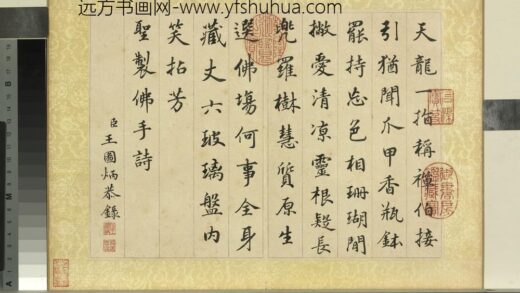 远方书画网-www.yfshuhua.com
天龍一指稱禪伯接
引猶聞爪甲香瓶鉢
罷持忘色相珊瑚間
撒愛清凉靈根疑長
兜羅樹慧質原生
選佛場何事全身
藏丈六玻璃盤內
笑拈芳
聖製佛手詩
臣王國炳恭錄